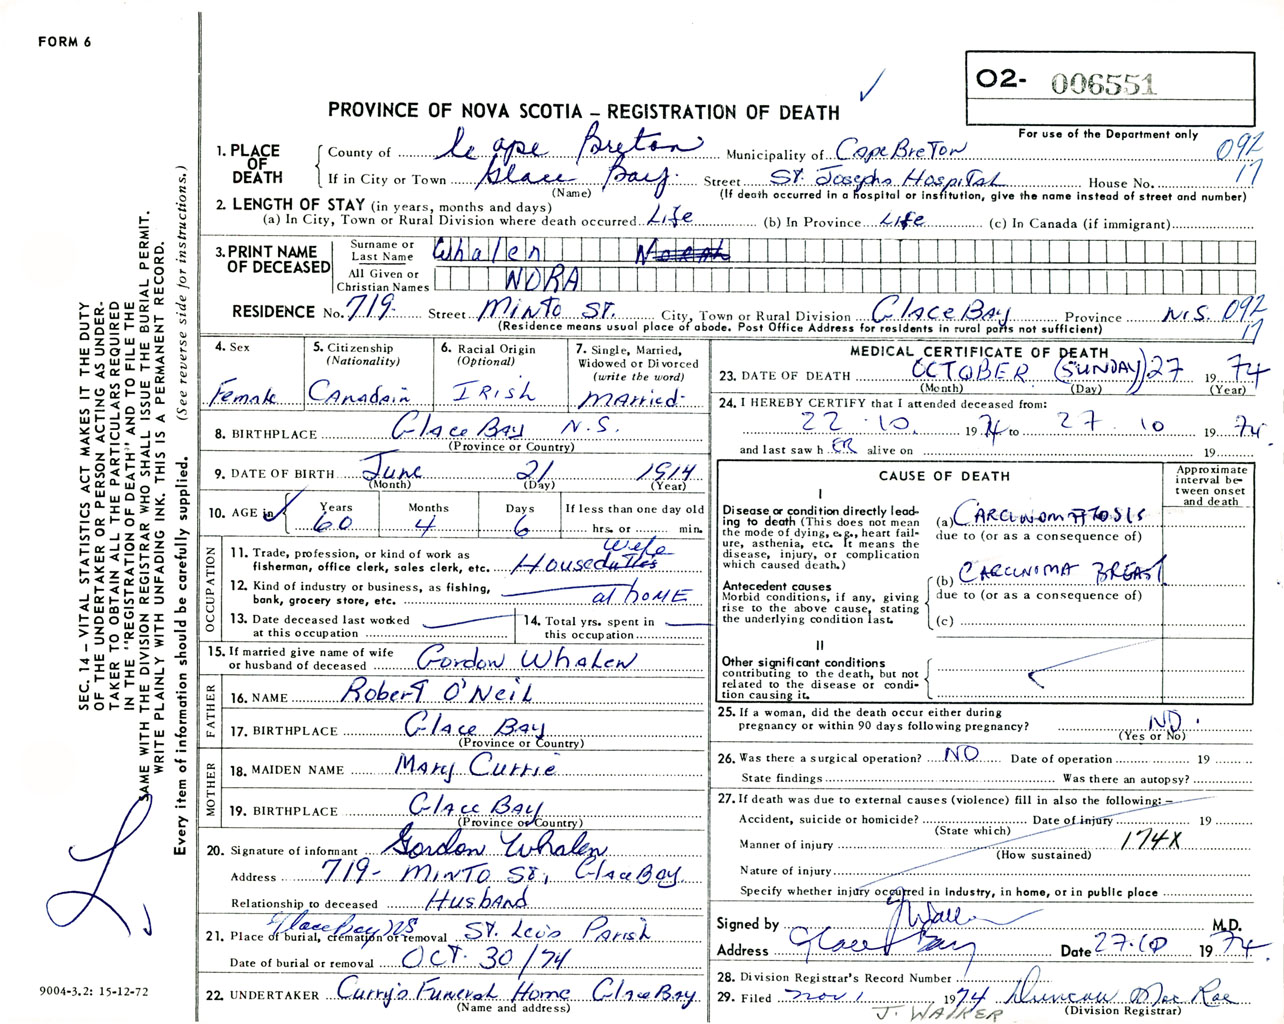 FORM 6
O2- 006551
PROVINCE OF NOVA SCOTIA – REGISTRATION OF DEATH
For use of the Department only
SEC. 14 – VITAL STATISTICS ACT MAKES IT THE DUTY
OF THE UNDERTAKER OR PERSON ACTING AS UNDER-
TAKER TO OBTAIN ALL THE PARTICULARS REQUIRED
IN THE "REGISTRATION OF DEATH" AND TO FILE THE
SAME WITH THE DIVISION REGISTRAR WHO SHALL ISSUE THE BURIAL PERMIT.
WRITE PLAINLY WITH UNFADING INK. THIS IS A PERMANENT RECORD.
Every item of information should be carefully supplied. (See reverse side for instructions.)
1. PLACE OF DEATH
County of Cape Breton Municipality of Cape Breton 092
If in City or Town Glace Bay. Street St. Josephs Hospital House No. 17
(Name) (If death occurred in a hospital or institution, give the name instead of street and number)
2. LENGTH OF STAY (in years, months and days)
(a) In City, Town or Rural Division where death occurred Life (b) In Province Life (c) In Canada (if immigrant)
3. PRINT NAME OF DECEASED
Surname or Last Name Whalen
All Given or Christian Names NORA
RESIDENCE No. 719 Street Minto St. City, Town or Rural Division Glace Bay Province N.S. 092
(Residence means usual place of abode. Post Office Address for residents in rural parts not sufficient) 17
4. Sex Female
5. Citizenship (Nationality) Canadain
6. Racial Origin (Optional) IRish
7. Single, Married, Widowed or Divorced (write the word) Married
8. BIRTHPLACE Glace Bay N.S.
(Province or Country)
9. DATE OF BIRTH June 21 1914
(Month) (Day) (Year)
10. AGE in Years 60 Months 4 Days 6 If less than one day old hrs. or min.
OCCUPATION
11. Trade, profession, or kind of work as fisherman, office clerk, sales clerk, etc. House Wife
12. Kind of industry or business, as fishing, bank, grocery store, etc. at home
13. Date deceased last worked at this occupation
14. Total yrs. spent in this occupation
15. If married give name of wife or husband of deceased Gordon Whalen
FATHER
16. NAME Robert O'Neil
17. BIRTHPLACE Glace Bay
(Province or Country)
MOTHER
18. MAIDEN NAME Mary Currie
19. BIRTHPLACE Glace Bay
(Province or Country)
20. Signature of informant Gordon Whalen
Address 719- Minto St, Glace Bay
Relationship to deceased Husband
21. Place of burial, cremation or removal Glace Bay NS St. Leo's Parish
Date of burial or removal OCT. 30/74
22. UNDERTAKER Curry's Funeral Home Glace Bay
(Name and address)
MEDICAL CERTIFICATE OF DEATH
23. DATE OF DEATH OCTOBER (SUNDAY) 27 19 74
(Month) (Day) (Year)
24. I HEREBY CERTIFY that I attended deceased from:
22 . 10. 19 74 to 27 . 10 19 74.
and last saw h ER alive on 19
CAUSE OF DEATH
Approximate interval between onset and death
I
Disease or condition directly leading to death (This does not mean the mode of dying, e.g., heart failure, asthenia, etc. It means the disease, injury, or complication which caused death.)
(a) CARCINOMATOSIS
due to (or as a consequence of)
Antecedent causes
Morbid conditions, if any, giving rise to the above cause, stating the underlying condition last.
(b) CARCINOMA BREAST
due to (or as a consequence of)
(c)
II
Other significant conditions contributing to the death, but not related to the disease or condition causing it.
25. If a woman, did the death occur either during pregnancy or within 90 days following pregnancy? NO.
(Yes or No)
26. Was there a surgical operation? NO Date of operation 19
State findings Was there an autopsy?
27. If death was due to external causes (violence) fill in also the following: –
Accident, suicide or homicide? Date of injury 19
(State which)
Manner of injury 174X
(How sustained)
Nature of injury
Specify whether injury occurred in industry, in home, or in public place
Signed by M.D.
Address Glace Bay Date 27.10 19 74.
28. Division Registrar's Record Number
29. Filed Nov 1 1974 Duncan MacRae
J. WALKER (Division Registrar)
9004-3.2: 15-12-72